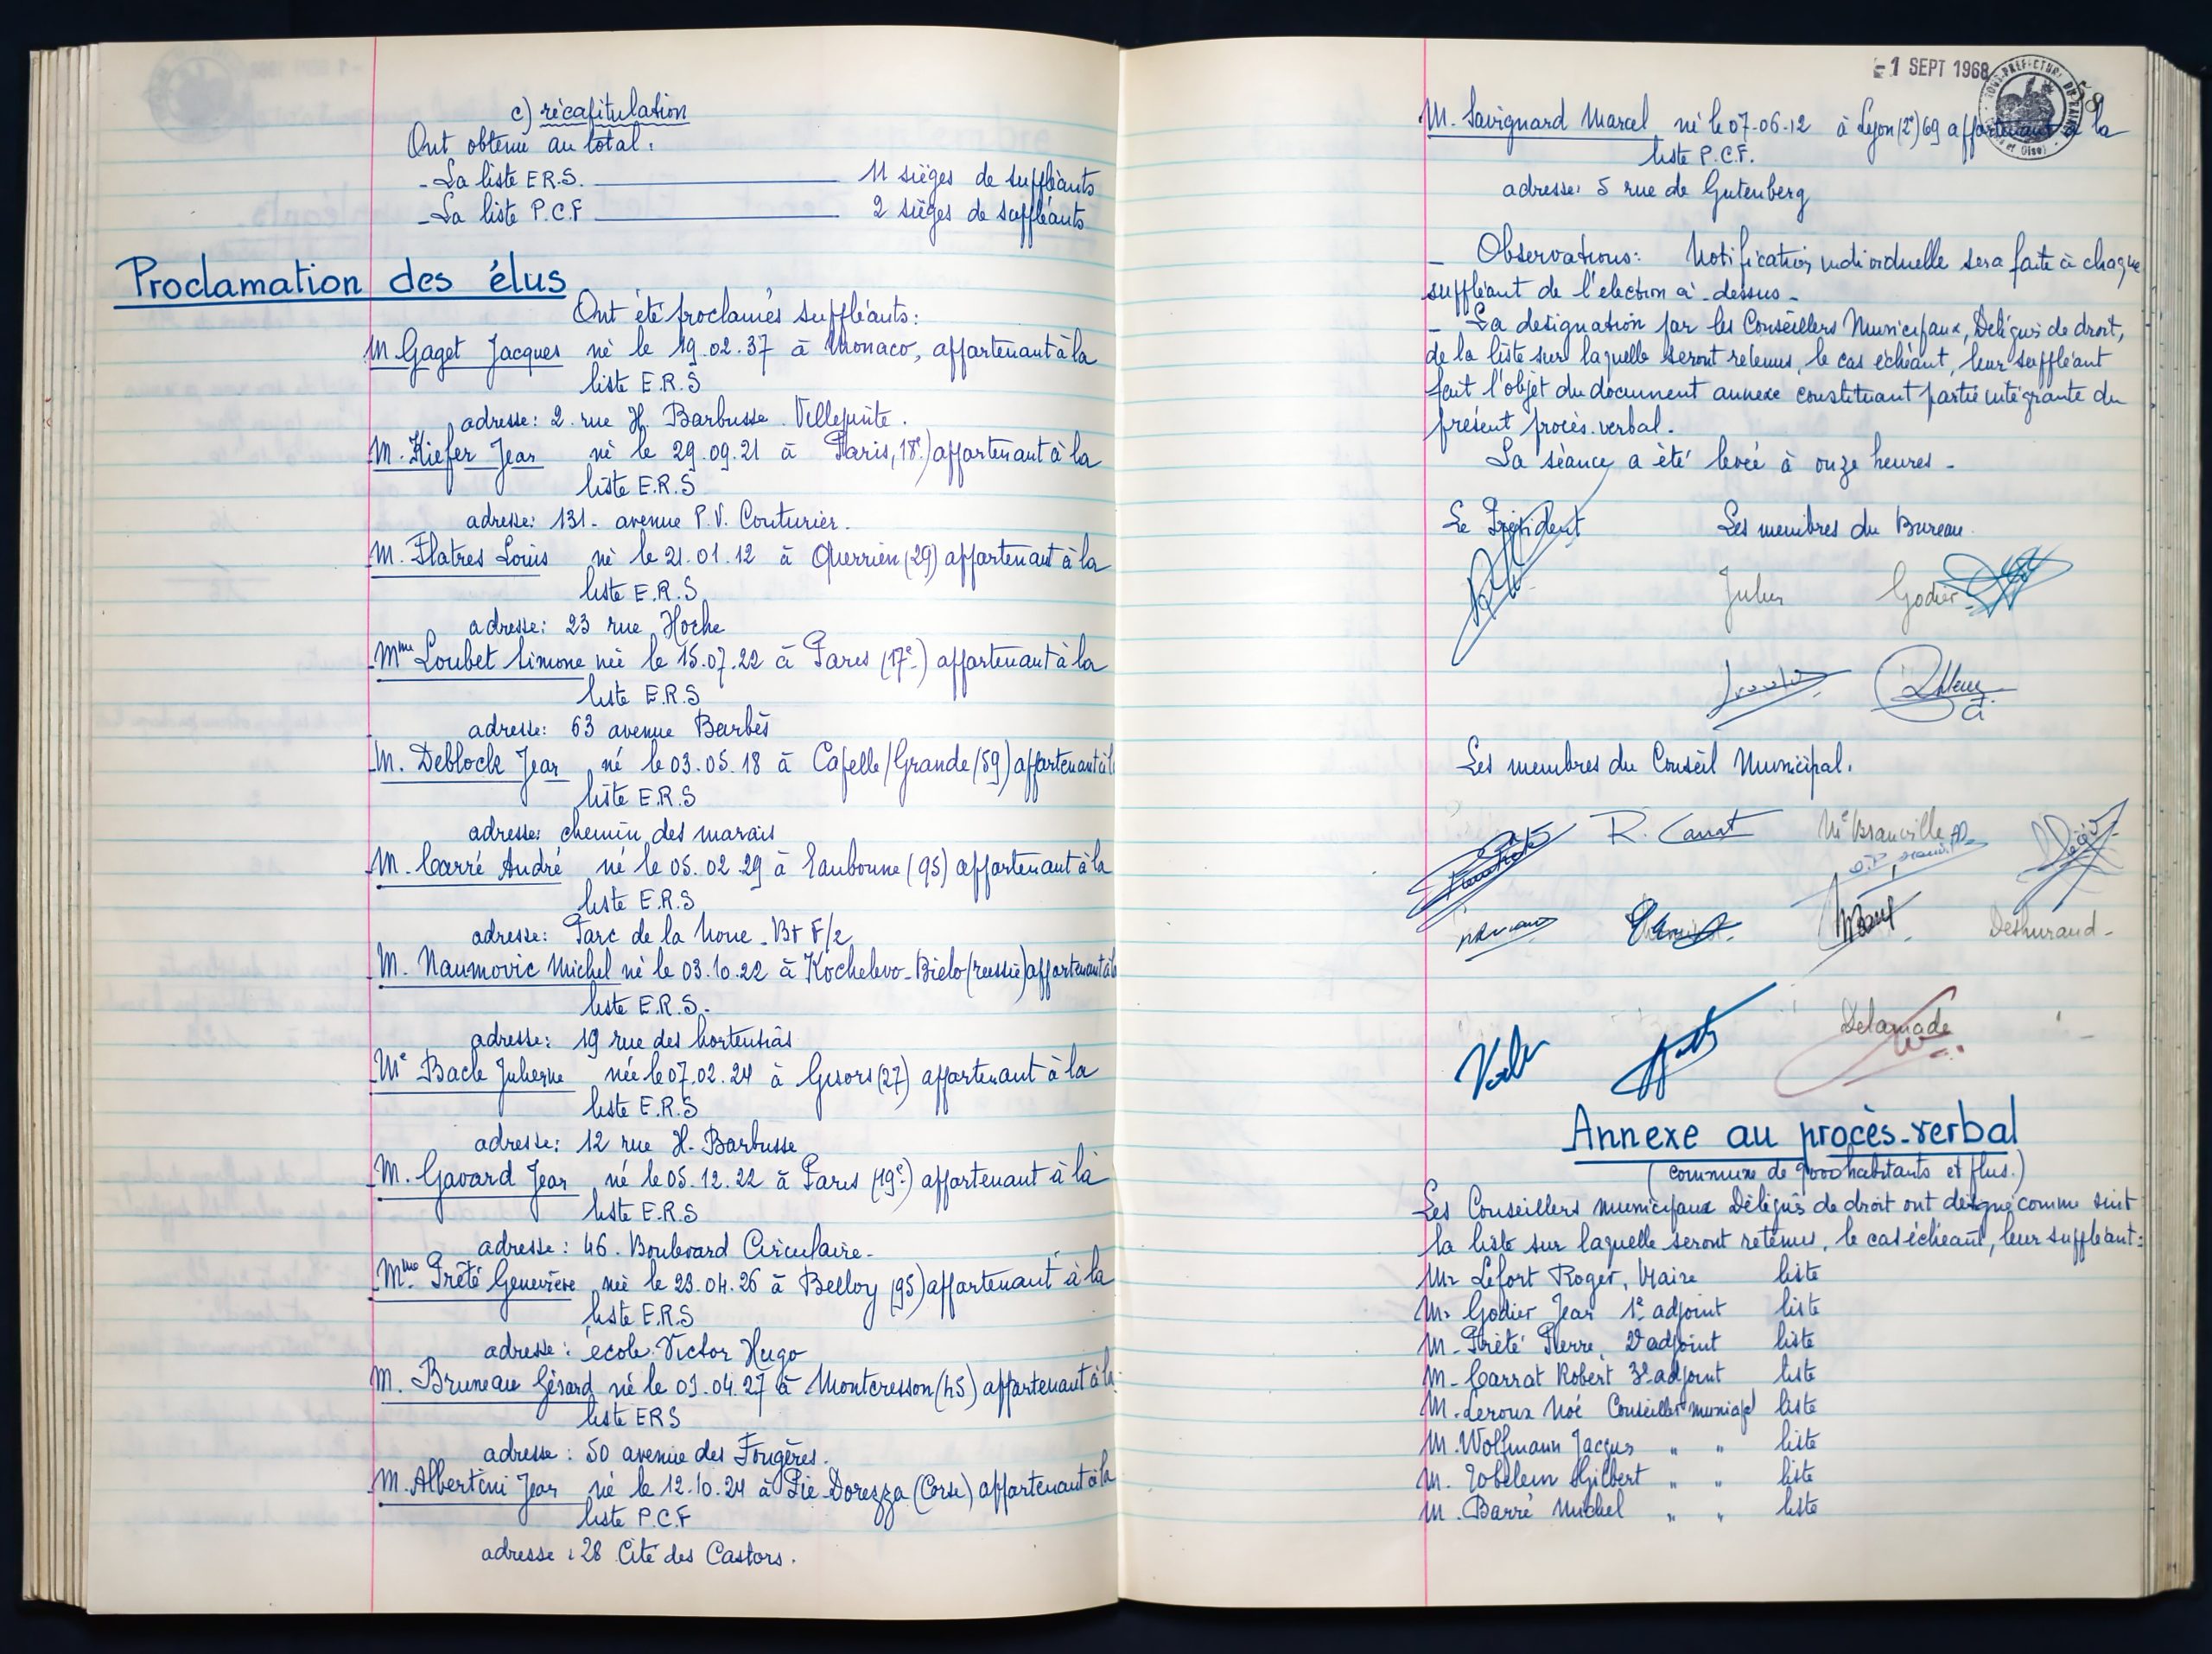 c) récapitulation
Ont obtenu au total :
- La liste E.R.S. 11 sièges de suppléants
- La liste P.C.F 2 sièges de suppléants
Proclamation des élus
Ont été proclamés suppléants :
M Gaget Jacques né le 19.02.37 à Monaco, appartenant à la
liste E.R.S
adresse : 2 rue H. Barbusse. Villepinte.
M. Kiefer Jean né le 29.09.21 à Paris, 18e) appartenant à la
liste E.R.S
adresse : 131 - avenue P.V. Couturier.
M. Flatres Louis né le 21.01.12 à Querrien (29) appartenant à la
liste E.R.S
adresse : 23 rue Hoche
Mme Loubet Simone née le 15.07.22 à Paris (17e) appartenant à la
liste E.R.S
adresse : 63 avenue Barbès
M. Deblock Jean né le 03.05.18 à Capelle/Grande (59) appartenant à l
liste E.R.S
adresse : chemin des marais
M. Carré André né le 05.02.29 à Eaubonne (95) appartenant à la
liste E.R.S
adresse : Parc de la Noue - Bt F/2
M. Naumovic Michel né le 03.10.22 à Kochelevo-Bielo (russie) appartenant à l
liste E.R.S.
adresse : 19 rue des hortensias
Me Bacle Julienne née le 07.02.24 à Gisors (27) appartenant à la
liste E.R.S
adresse : 12 rue H. Barbusse
M. Gavard Jean né le 05.12.22 à Paris (19e) appartenant à la
liste E.R.S
adresse : 46. Boulevard Circulaire -
Mme Prêté Geneviève née le 23.04.26 à Belloy (95) appartenant à la
liste E.R.S
adresse : école Victor Hugo
M. Bruneau Gérard né le 01.04.27 à Montcresson (45) appartenant à la
liste ERS
adresse : 50 avenue des Fougères.
M. Albertini Jean né le 12.10.24 à Pie-Dorezza (Corse) appartenant à la
liste P.C.F
adresse : 28 Cité des Castors.
-1 SEPT 1968
M. Savignard Marcel né le 07-06-12 à Lyon (2e) 69 appartenant à la
liste P.C.F.
adresse : 5 rue de Gutenberg
- Observations : Notification individuelle sera faite à chaque
suppléant de l'élection ci-dessus -
- La désignation par les Conseillers Municipaux, Délégués de droit,
de la liste sur laquelle seront retenus, le cas échéant, leur suppléant
fait l'objet du document annexe constituant partie intégrante du
présent procès-verbal.
La séance a été levée à onze heures -
Le Président Les membres du Bureau.
Godier
Les membres du Conseil Municipal.
R. Carrat
Delamade
Annexe au procès-verbal
(commune de 9000 habitants et plus.)
Les Conseillers municipaux Délégués de droit ont désigné comme suit
la liste sur laquelle seront retenus, le cas échéant, leur suppléant :
Mr Lefort Roger, Maire liste
Mr Godier Jean 1e adjoint liste
M. Prêté Pierre, 2e adjoint liste
M. Carrat Robert 3e adjoint liste
M. Leroux Noé Conseiller municipal liste
M. Wolfmann Jacques " " liste
M. Tobelem Gilbert " " liste
M. Barré Michel " " liste